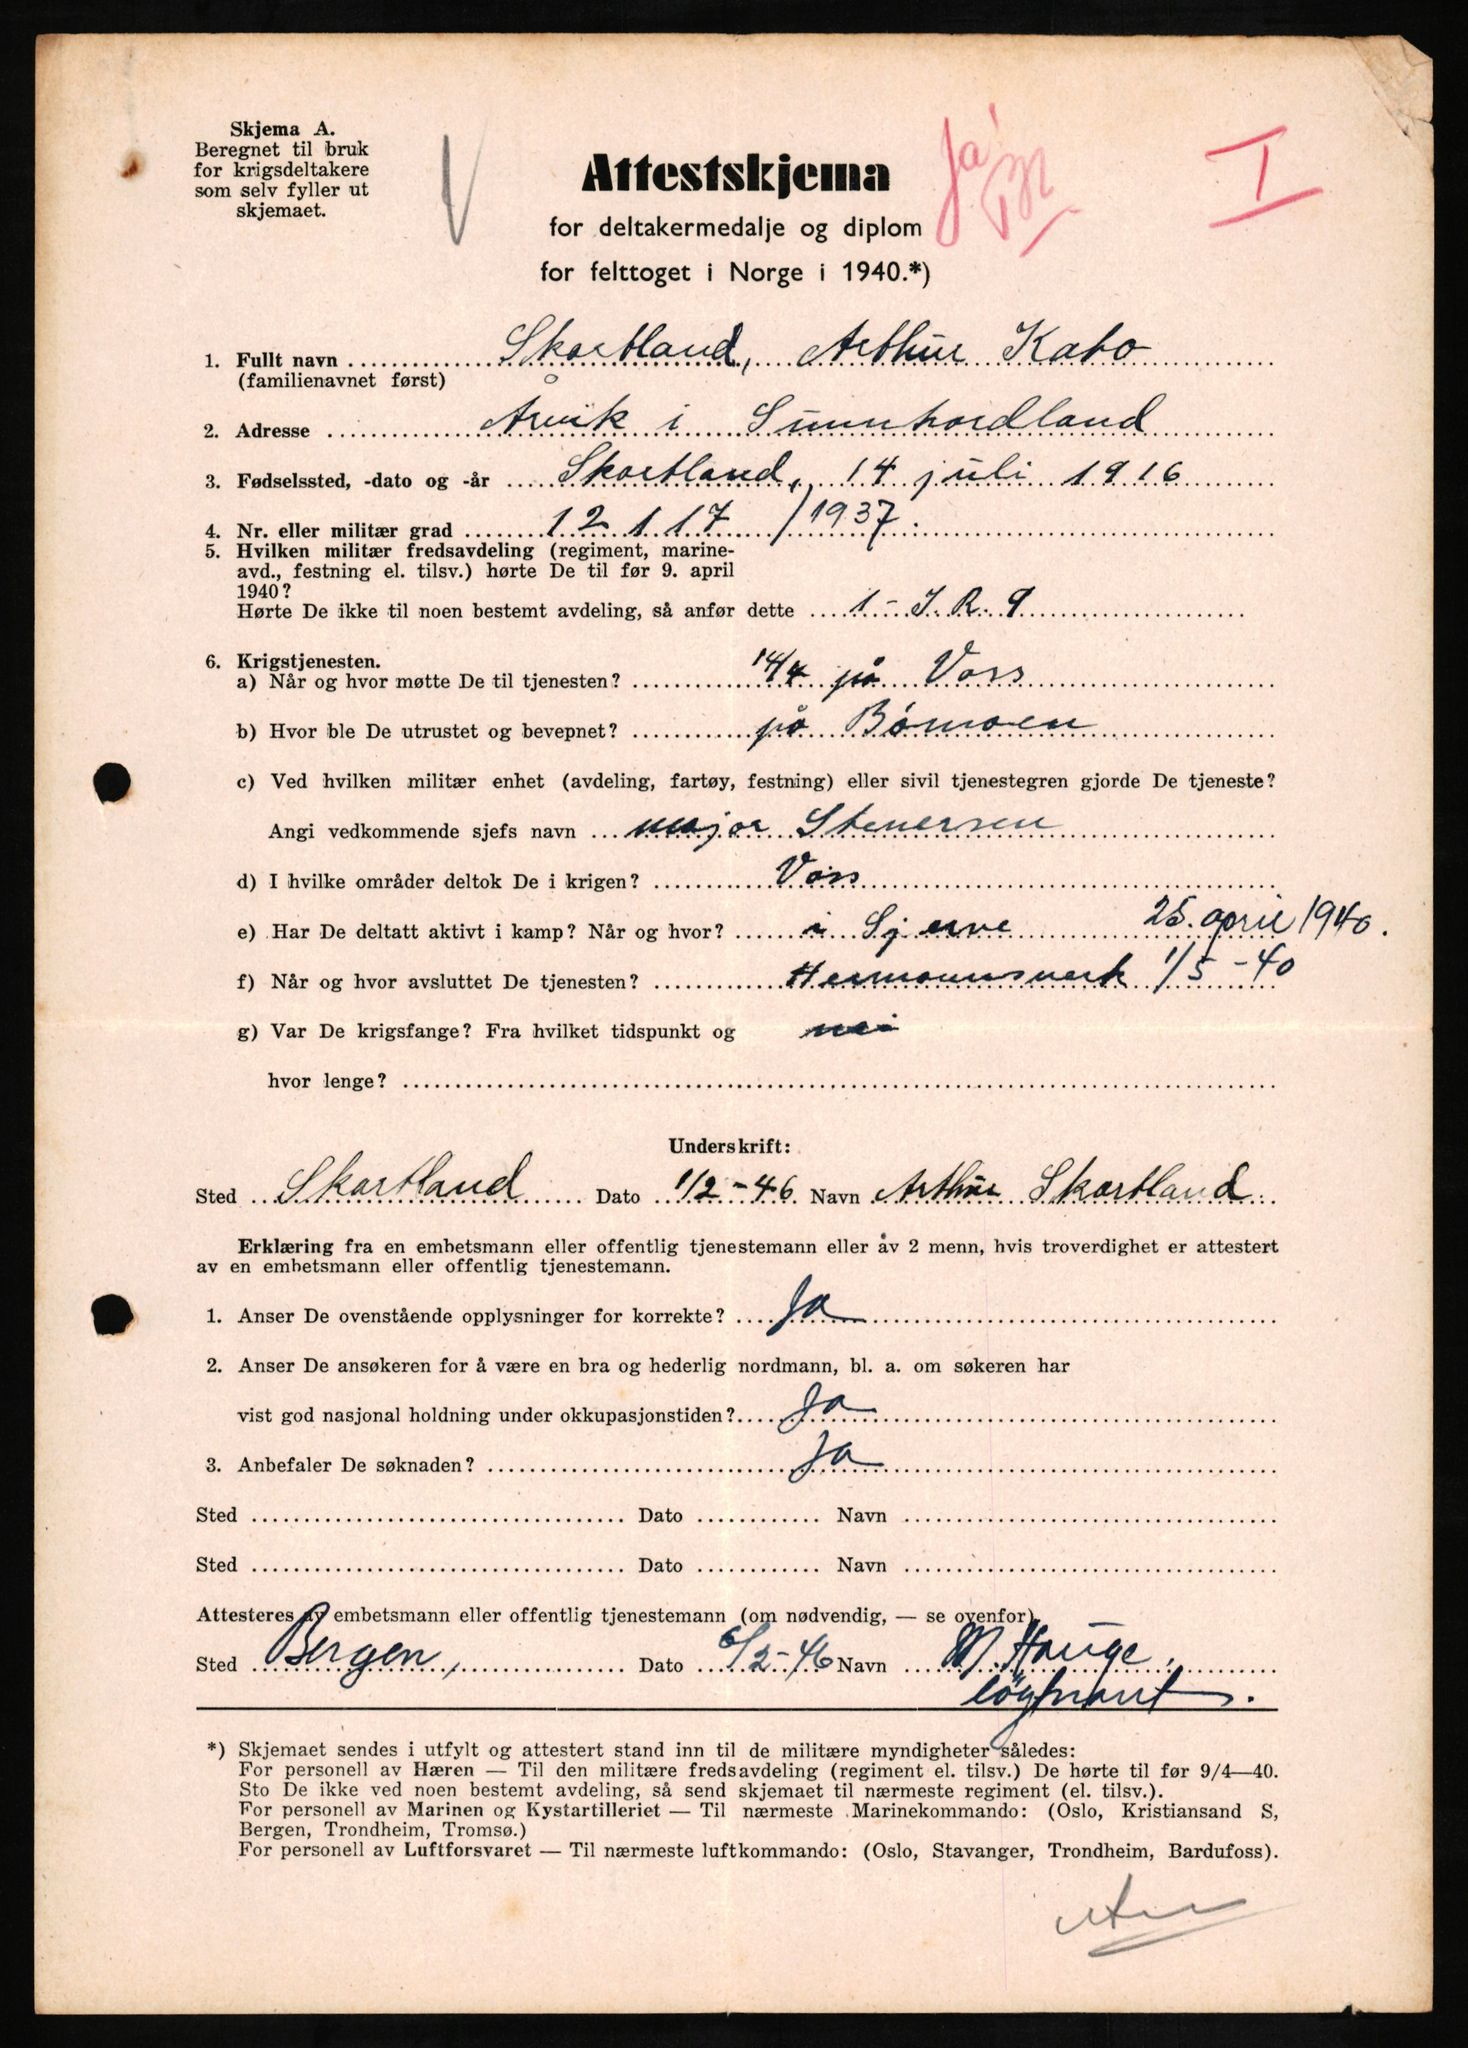 Skjema A.
Beregnet til bruk
for krigsdeltakere
som selv fyller ut
skjemaet.
Ja
I
Attestskjema
for deltakermedalje og diplom
for felttoget i Norge i 1940.*)
1. Fullt navn Skartland, Arthur Kato
(familienavnet først)
2. Adresse Årvik i Sunnhordland
3. Fødselssted, -dato og -år Skartland, 14 juli 1916
4. Nr. eller militær grad 12117/1937
5. Hvilken militær fredsavdeling (regiment, marine-
avd., festning el. tilsv.) hørte De til før 9. april
1940?
Hørte De ikke til noen bestemt avdeling, så anfør dette 1 - I. R. 9
6. Krigstjenesten.
a) Når og hvor møtte De til tjenesten? 14/4 på Voss
b) Hvor ble De utrustet og bevepnet? på Bømoen
c) Ved hvilken militær enhet (avdeling, fartøy, festning) eller sivil tjenestegren gjorde De tjeneste?
Angi vedkommende sjefs navn major Stenersen
d) I hvilke områder deltok De i krigen? Voss
e) Har De deltatt aktivt i kamp? Når og hvor? i Sjerve 25. april 1940.
f) Når og hvor avsluttet De tjenesten? Hermannsverk 1/5-40
g) Var De krigsfange? Fra hvilket tidspunkt og nei
hvor lenge?
Underskrift:
Sted Skartland Dato 1/2-46 Navn Arthur Skartland
Erklæring fra en embetsmann eller offentlig tjenestemann eller av 2 menn, hvis troverdighet er attestert
av en embetsmann eller offentlig tjenestemann.
1. Anser De ovenstående opplysninger for korrekte? Ja
2. Anser De ansøkeren for å være en bra og hederlig nordmann, bl. a. om søkeren har
vist god nasjonal holdning under okkupasjonstiden? Ja
3. Anbefaler De søknaden? Ja
Sted Dato Navn
Sted Dato Navn
Attesteres av embetsmann eller offentlig tjenestemann (om nødvendig, — se ovenfor)
Sted Bergen, Dato 6/2-46 Navn M. Hauge,
løytnant.
*) Skjemaet sendes i utfylt og attestert stand inn til de militære myndigheter således:
For personell av Hæren — Til den militære fredsavdeling (regiment el. tilsv.) De hørte til før 9/4—40.
Sto De ikke ved noen bestemt avdeling, så send skjemaet til nærmeste regiment (el. tilsv.).
For personell av Marinen og Kystartilleriet — Til nærmeste Marinekommando: (Oslo, Kristiansand S,
Bergen, Trondheim, Tromsø.)
For personell av Luftforsvaret — Til nærmeste luftkommando: (Oslo, Stavanger, Trondheim, Bardufoss).